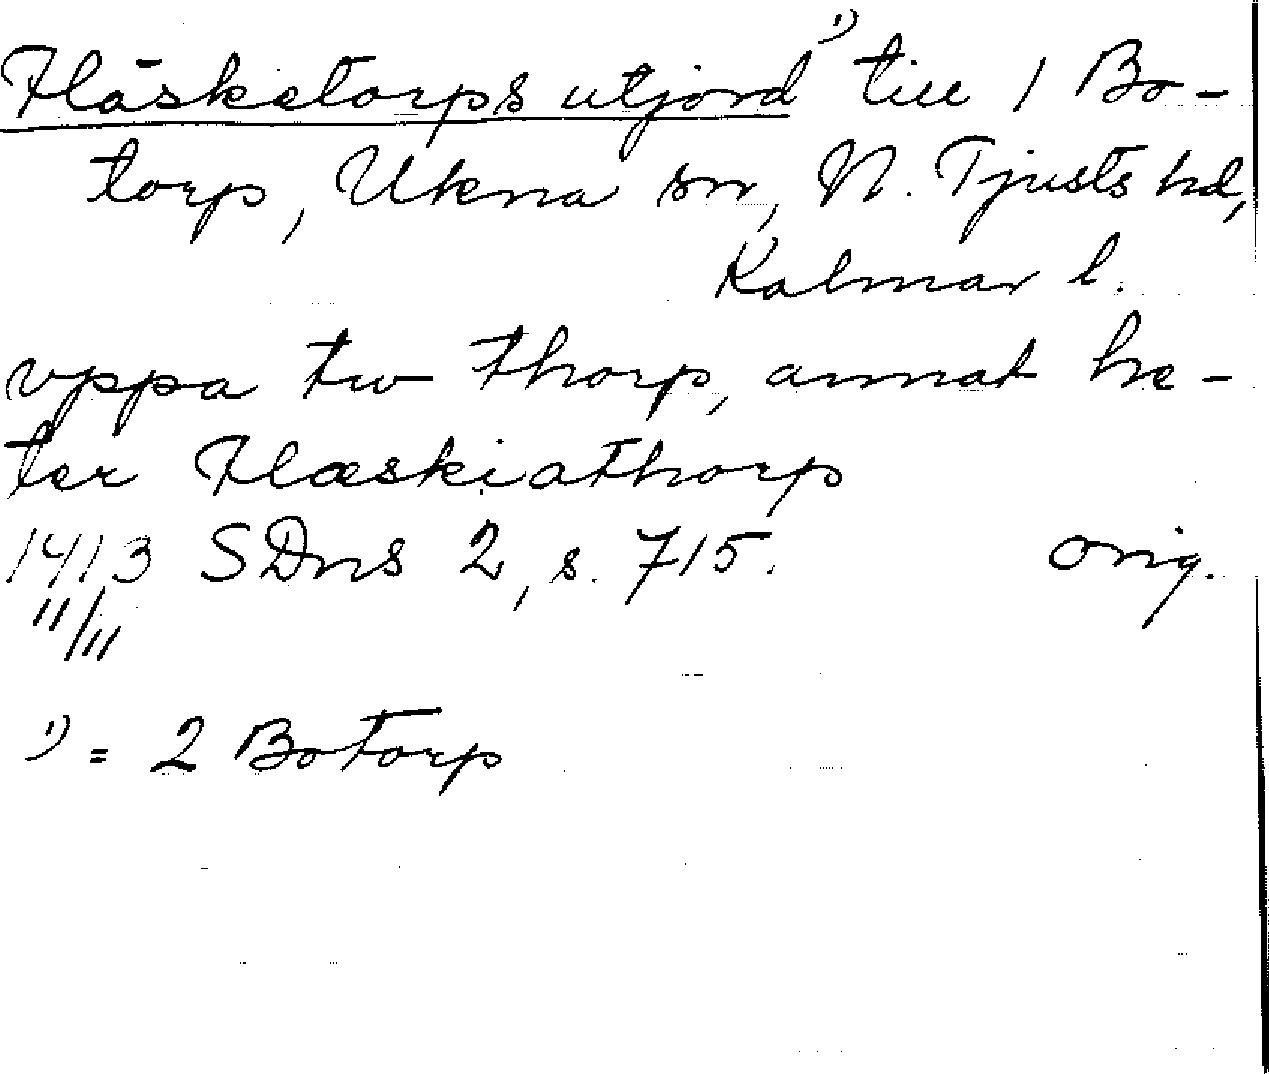 Fläsketorps utjord ¹) till 1 Bo-
torp, Ukna sn, N. Tjusts hd,
Kalmar l.
vppa tw thorp, annat he-
ter Flæskiathorp
1413 SDns 2, s. 715. orig.
11/11
¹) = 2 Botorp